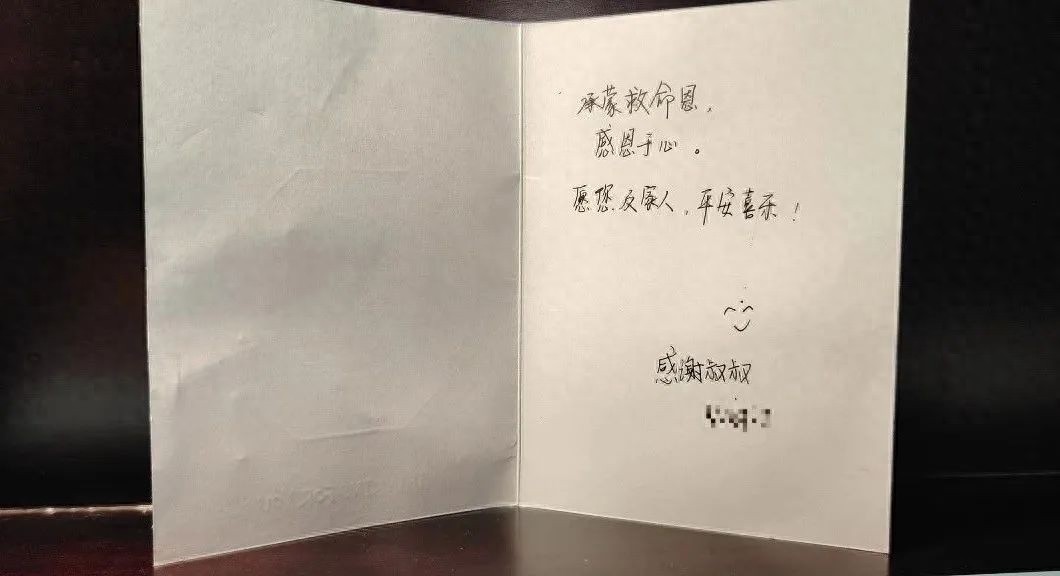 承蒙救命恩，
感恩于心。
愿您及家人，平安喜乐！
感谢叔叔